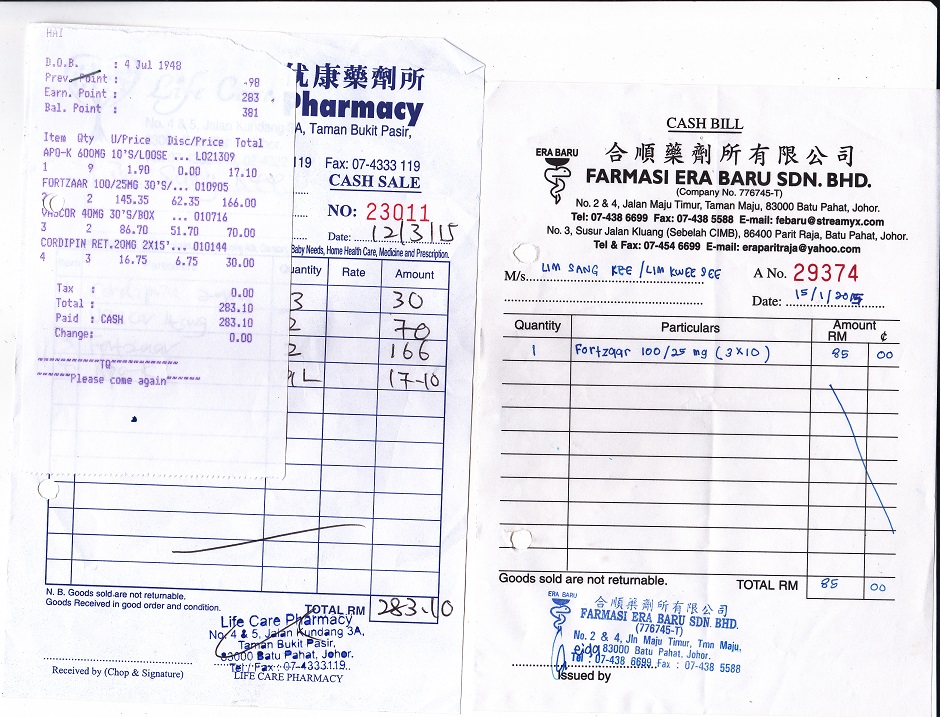 HAI
D.O.B. : 4 Jul 1948
Prev. Point : -98
Earn. Point : 283
Bal. Point : 381
Item Qty U/Price Disc/Price Total
APO-K 600MG 10'S/LOOSE ... L021309
1 9 1.90 0.00 17.10
FORTZAAR 100/25MG 30'S/... 010905
2 145.35 62.35 166.00
40MG 30'S/BOX ... 010716
3 2 86.70 51.70 70.00
CORDIPIN RET.20MG 2X15'... 010144
4 3 16.75 6.75 30.00
Tax : 0.00
Total : 283.10
Paid : CASH 283.10
Change: 0.00
~~~~~~~~~~~~TQ~~~~~~~~~~~~
~~~~~~Please come again~~~~~~
康藥劑所
Pharmacy
A, Taman Bukit Pasir,
119 Fax: 07-4333 119
CASH SALE
NO: 23011
Date: 12/3/15
Baby Needs, Home Health Care, Medicine and Prescription.
Quantity Rate Amount
3 30
2 70
2 166
9L 17-10
N. B. Goods sold are not returnable.
Goods Received in good order and condition.
TOTAL RM 283.10
Life Care Pharmacy
No. 4 & 5, Jalan Kundang 3A,
Taman Bukit Pasir,
83000 Batu Pahat, Johor.
Tel / Fax : 07-4333119
Received by (Chop & Signature)
LIFE CARE PHARMACY
CASH BILL
ERA BARU
合順藥劑所有限公司
FARMASI ERA BARU SDN. BHD.
(Company No. 776745-T)
No. 2 & 4, Jalan Maju Timur, Taman Maju, 83000 Batu Pahat, Johor.
Tel: 07-438 6699 Fax: 07-438 5588 E-mail: febaru@streamyx.com
No. 3, Susur Jalan Kluang (Sebelah CIMB), 86400 Parit Raja, Batu Pahat, Johor.
Tel & Fax: 07-454 6699 E-mail: eraparitraja@yahoo.com
M/s LIM SANG KEE / LIM KWEE SEE
A No. 29374
Date: 15/1/2015
Quantity Particulars Amount
RM ¢
1 Fortzaar 100/25 mg (3x10) 85 00
Goods sold are not returnable.
TOTAL RM 85 00
ERA BARU
合順藥劑所有限公司
FARMASI ERA BARU SDN. BHD.
(776745-T)
No. 2 & 4, Jln Maju Timur, Tmn Maju,
83000 Batu Pahat, Johor.
Tel : 07-438 6699 Fax : 07-438 5588
Issued by